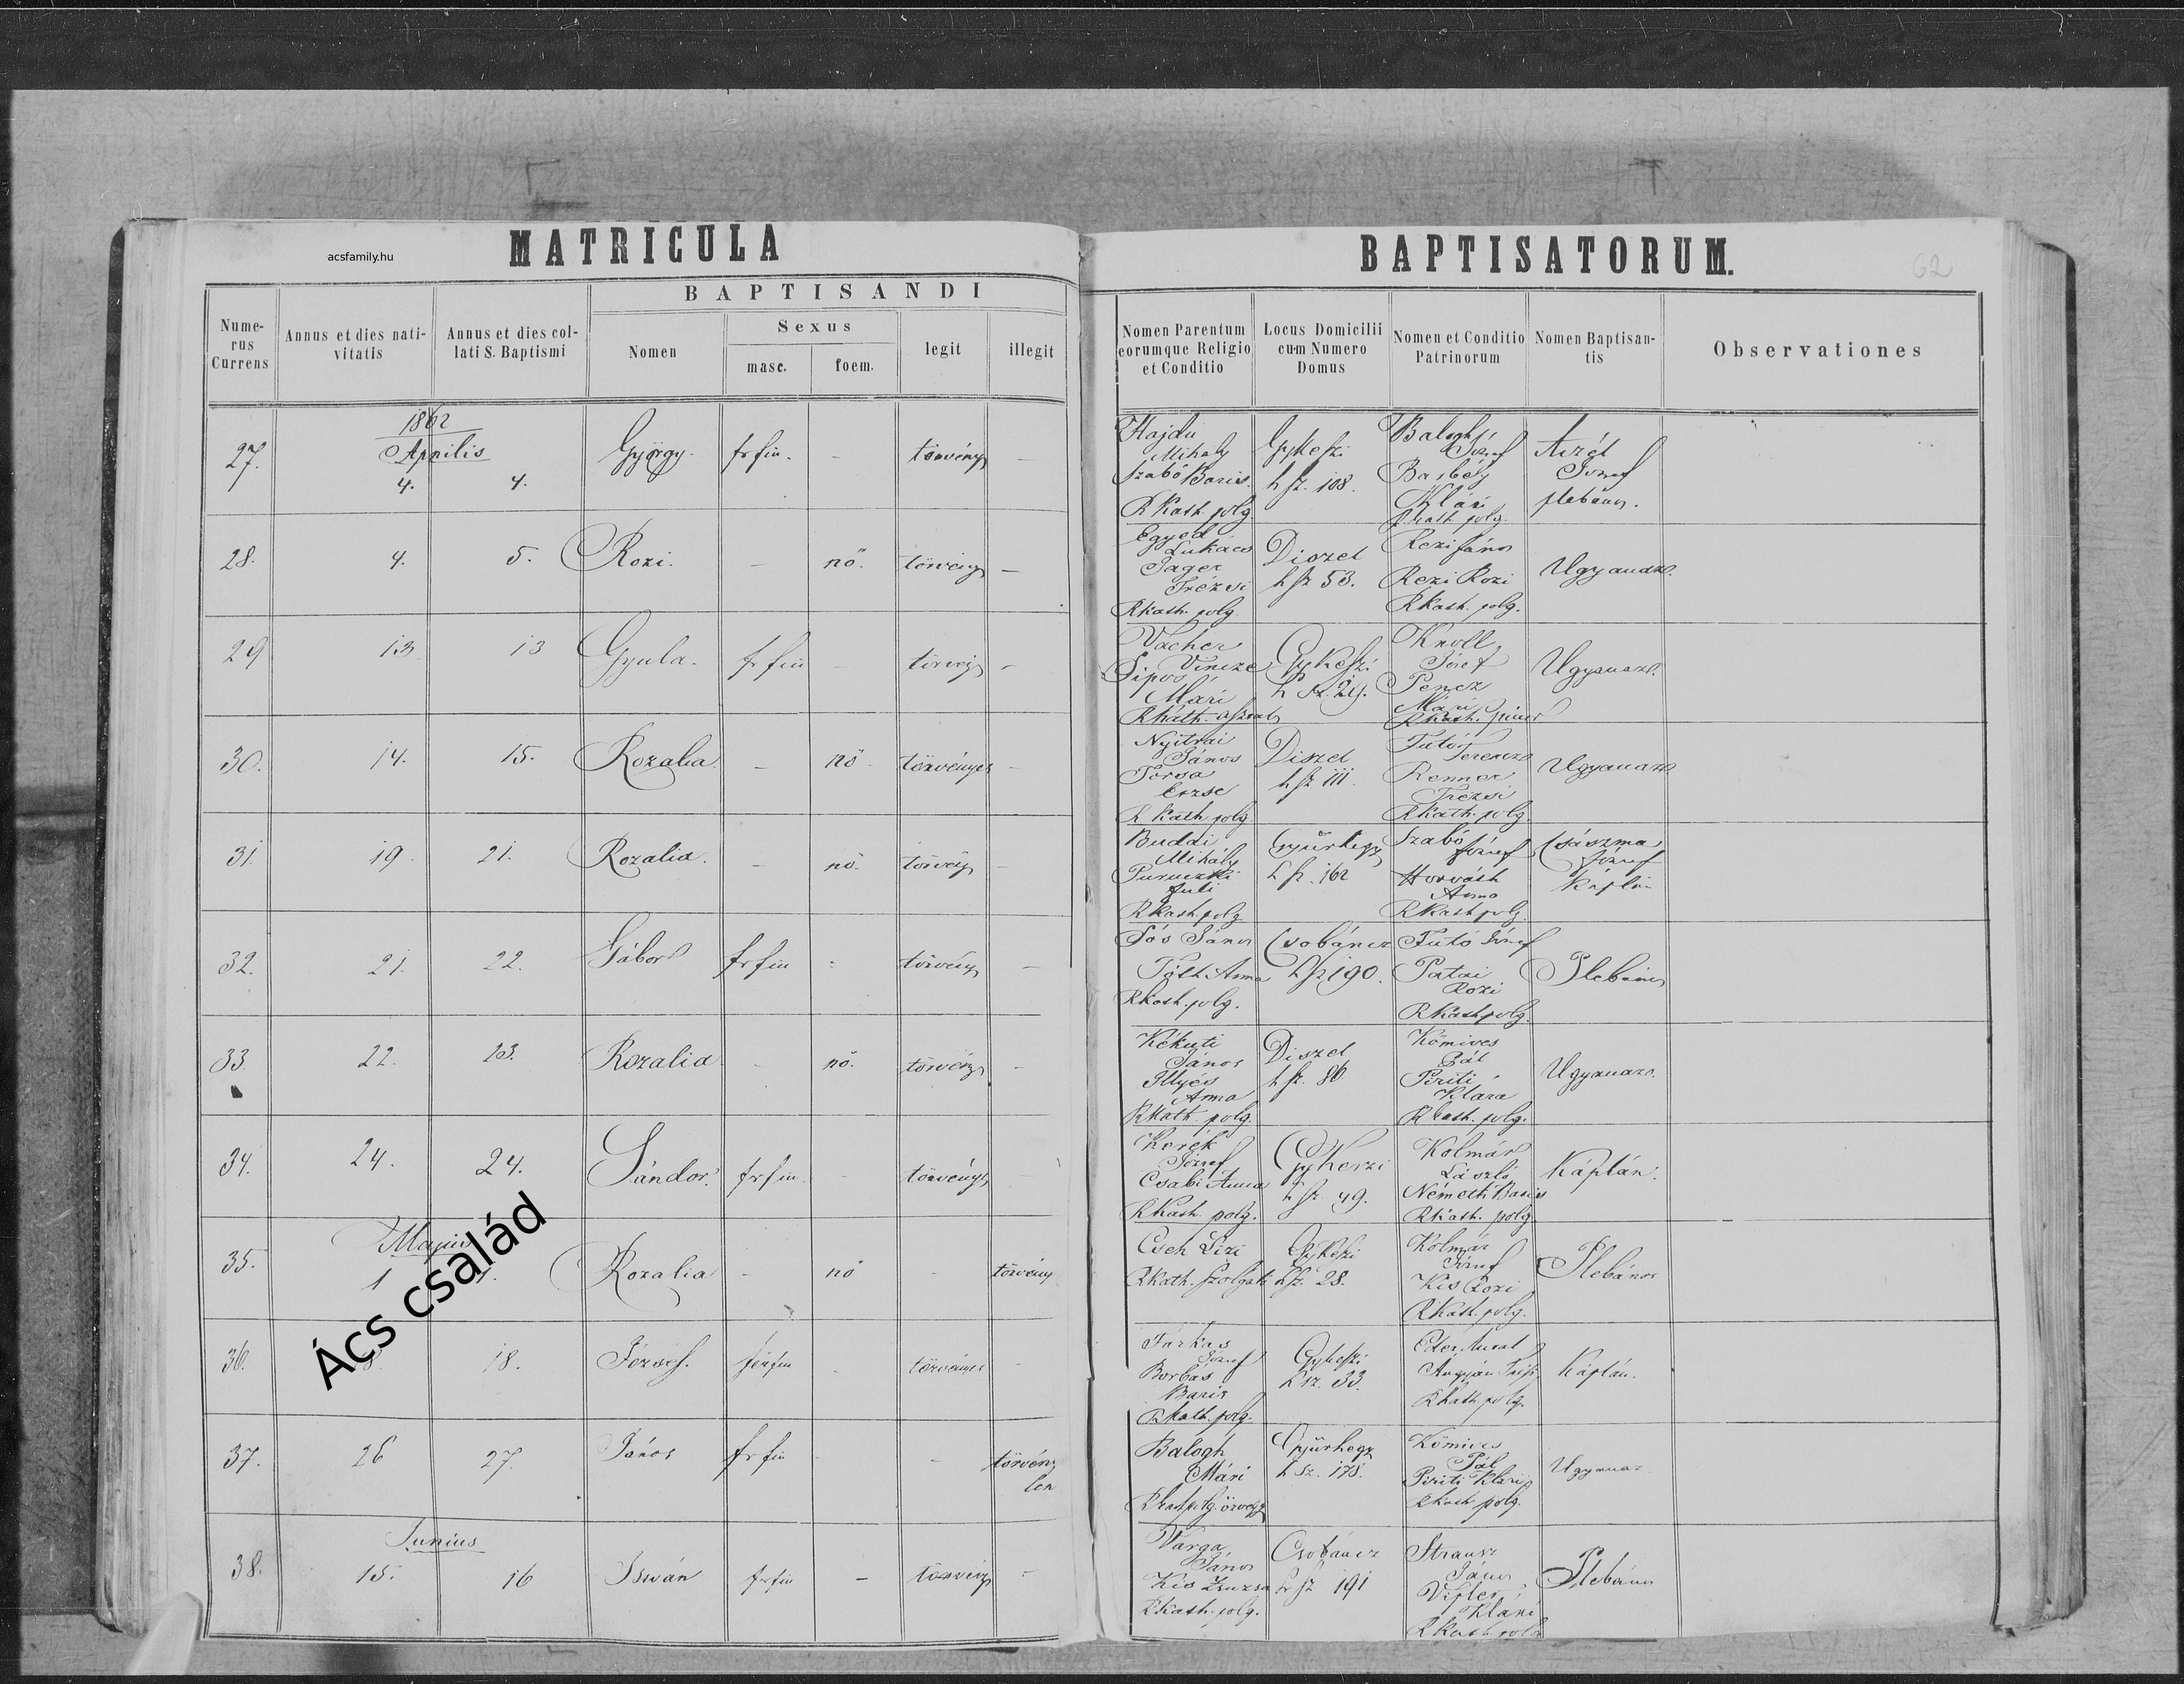 MATRICULA
BAPTISATORUM.
acsfamily.hu
62
BAPTISANDI
Nume-
rus
Currens
Annus et dies nati-
vitatis
Annus et dies col-
lati S. Baptismi
Nomen
Sexus
masc.
foem.
legit
illegit
Nomen Parentum
eorumque Religio
et Conditio
Locus Domicilii
cum Numero
Domus
Nomen et Conditio
Patrinorum
Nomen Baptisan-
tis
Observationes
1862
Aprilis
27. 4. 4. György. frfiu. – törvény –
Hajdu
Mihaly
Szabó Baris.
R Kath polg.
Gykeszi
h sz. 108.
Balogh
József
Klári
Rkath polg.
József
plebános.
28. 4. 5. Rozi. – nő. törvény –
Egyed
Lukács
Jager
Trézsi
Rkath. polg.
Diszel
h sz 53.
Rezi János
Rezi Rozi
RKath. polg.
Ugyanaz.
29 13 13 Gyula. frfiu – törvény –
Vacher
Vincze
Sipos
Mári
Rkath.
Gykeszi
h sz. 29.
Knoll
József
Pencz
Mári
Rkath.
Ugyanaz.
30. 14. 15. Rozalia – nő törvényes –
Nyitrai
János
Torsa
Erzse
R Kath polg
Diszel
h sz 111.
Tutó
Ferencz
Renner
Trézsi
RKath. polg.
Ugyanaz.
31. 19. 21. Rozalia. – nő. törvény –
Buddai
Mihály
Juli
RKath. polg
Gyürhegy
h sz. 162
Szabó
József
Horváth
Anna
RKath polg.
Császma
József
Káplán
32. 21. 22. Gábor frfiu : törvény –
Sós János
Tóth Anna
Rkath. polg.
Csobáncz
h sz 190.
Tutó József
Patai
Rozi
RKath polg.
Plebános
33. 22. 23. Rozalia – nő. törvény –
Kékuti
János
Illyés
Anna
RKath polg.
Diszel
h sz. 86.
Kömives
Pál
Piriti
Klara
R kath. polg.
Ugyanaz.
34. 24. 24. Sándor. frfiu. – törvény
József
Csabi Anna
RKath. polg.
Gykeszi
h sz 49.
Kolmár
László
Németh Baris
RKath. polg
Káplán.
Majus
35. 1 1. Rozalia – nő – törvény
Cseh Lizi
Rkath. szolgáló
Gykeszi
h sz. 28.
Kolmár
József
Kis Rozi
RKath. polg.
Plebános
36. 18. József. férfiu – törvényes –
Farkas
József
Borbás
Baris
RKath. polg.
Gykeszi
h sz. 33.
Eder Antal
Rkath polg.
Káplán.
37. 26 27. János frfiu – törvény
len
Balogh
Mári
Rkath polg. özvegy
Gyürhegy
h sz. 178.
Kömives
Pál
Piriti Klari
Rkath polg.
Ugyanaz
Junius
38. 15. 16 István frfiu – törvény –
Varga
János
Kis Zsuzsa
RKath. polg.
Csobáncz
h sz 191
Strausz
János
Klári
R Kath polg
Plebános
Ács család